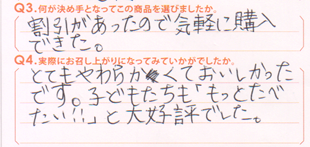 Q3.何が決め手となってこの商品を選びましたか。
割引があったので気軽に購入
できた。
Q4.実際にお召し上がりになってみていかがでしたか。
とてもやわらかくておいしかった
です。子どもたちも「もっとたべ
たい!!」と大好評でした。